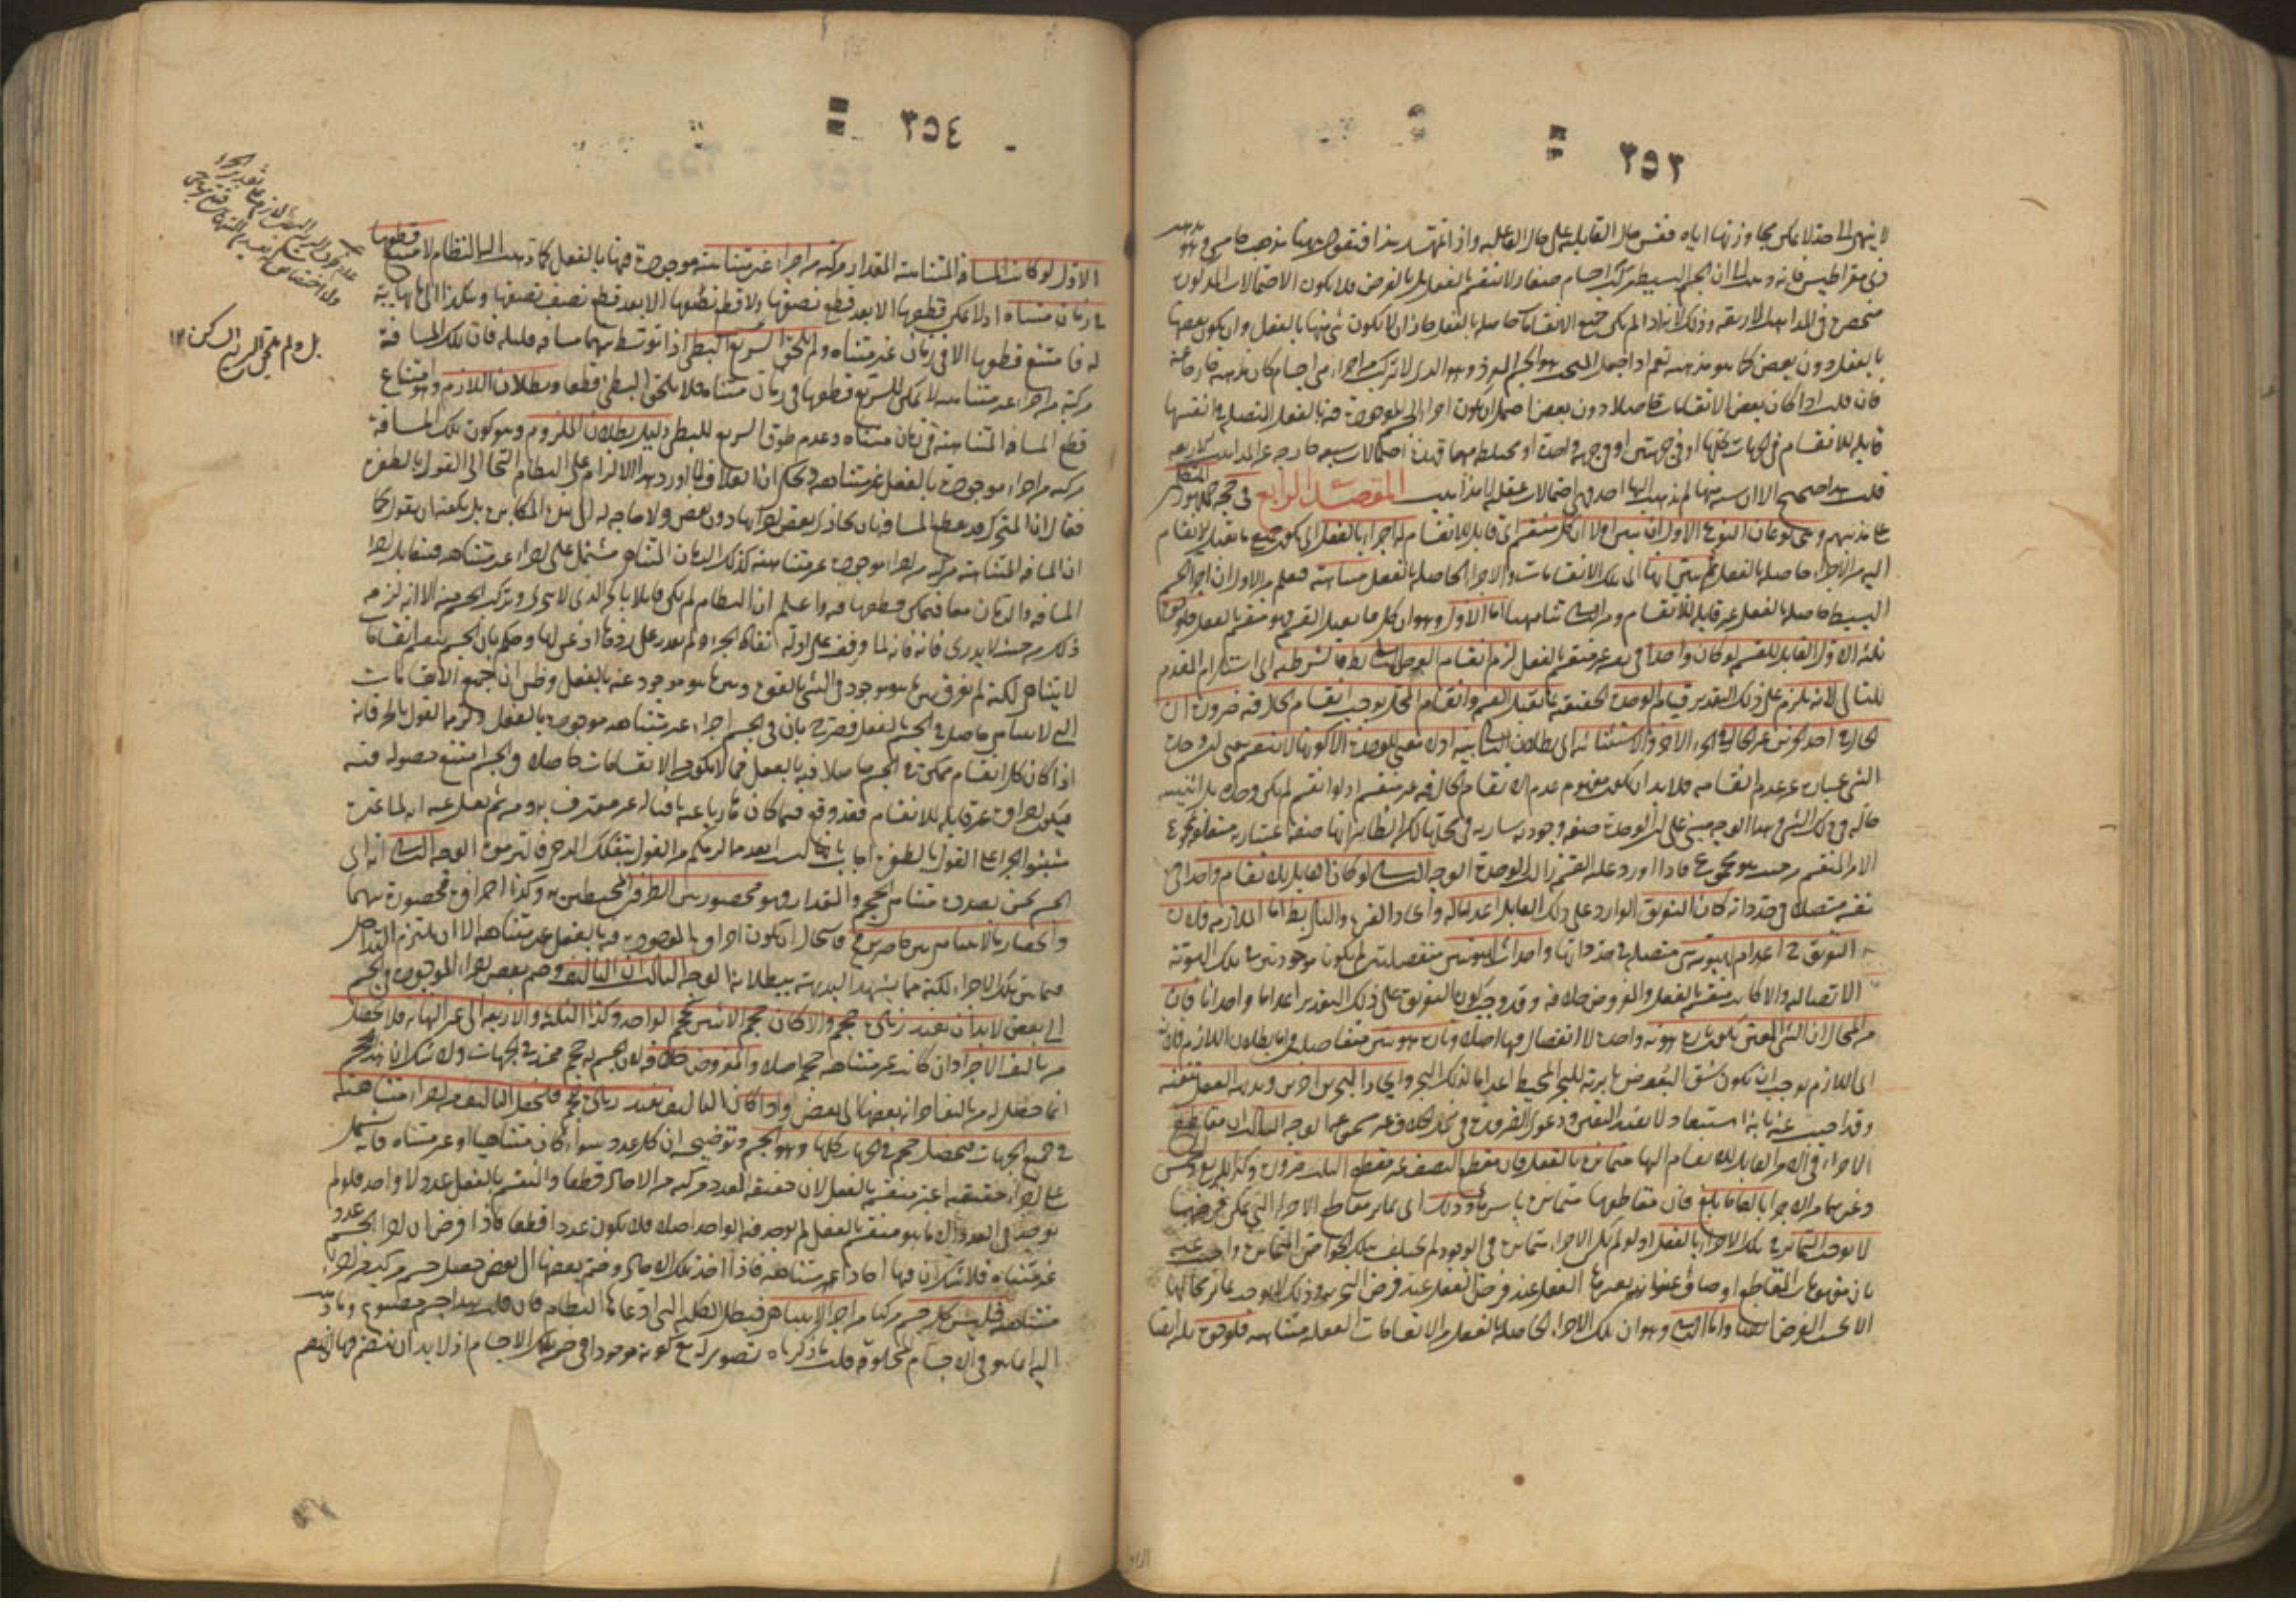 ٣٥٣
لا ينتهى الى حد لا يمكن تجاوزها اياه فقس حال القابلية على حال الفاعلية واذ قد تمهد هذا فنقول ههنا مذهب خامس وهو مذهب
ذى مقراطيس فانه ذهب الى ان الجسم البسيط مركب من اجسام صغار لا تنقسم بالفعل بل بالفرض فلا يكون الاحتمالات المذكورة
منحصرة فى المذاهب الاربعة وذلك لانه اذا لم يكن جميع الانقسامات حاصلة بالفعل جاز ان لا يكون شئ منها بالفعل وان يكون بعضها
بالفعل دون بعض كما هو مذهبه نعم اذا جعل المبحث هو الجسم المفرد وهو الذى لا تركب من اجزاء هى اجسام كان مذهبه خارجا عنه
فان قلت اذا كان بعض الانقسامات حاصلا دون بعض احتمل ان يكون اجزاء الجسم الموجودة فيه بالفعل المتصلة فى انفسها
قابلة للانقسام فى الجهات كلها او فى جهتين او فى جهة واحدة او مختلطة منها فهذه احتمالات سبعة خارجة عن المذاهب الاربعة
قلت هذا صحيح الا ان ستة منها لم يذهب اليها احد فهى احتمالات عقلية لا مذاهب المقصد الرابع فى حجة جمهور المتكلمين
على مذهبهم وهى نوعان النوع الاول ان نبين اولا ان كل منقسم اى قابل للانقسام له اجزاء بالفعل اى يكون جميع ما يقبل الانقسام
اليه من الاجزاء حاصلة بالفعل ثم نبين ثانيا ان تلك الانقسامات والاجزاء الحاصلة بالفعل متناهية فيعلم من الاول ان اجزاء الجسم
البسيط حاصلة بالفعل غير قابلة للانقسام ومن الثانى تناهيها اما الاول وهو ان كل ما يقبل القسمة فهو منقسم بالفعل فلوجوه
ثلثة الاول القابل للقسمة لو كان واحدا فى نفسه غير منقسم بالفعل لزم انقسام الوحدة والتالى باطل فالشرطية اى استلزام المقدم
للتالى لانه يلزم على ذلك التقدير قيام الوحدة الحقيقية بما يقبل القسمة وانقسام المحل يوجب انقسام الحال فيه ضرورة ان
الحال فى احد الجزئين غير الحال فى الجزء الاخر والاستثنائية اى بطلان التالى بينة اذ لا معنى للوحدة الا كونها لا تنقسم يعنى ان وحدة
الشئ عبارة عن عدم انقسامه فلا بد ان يكون مفهوم عدم الانقسام الحال فيه غير منقسم اذ لو انقسم لم يكن وحدة بل اثنينية
حالة فى ذلك الشئ وهذا الوجه مبنى على ان الوحدة صفة وجودية سارية فى محلها لكن الظاهر انها صفة اعتبارية متعلقة بمجموع
الامر المنقسم من حيث هو مجموع فاذا اورد عليه القسمة زالت الوحدة الوجه الثانى لو كان القابل للانقسام واحدا فى
نفسه متصلا فى حد ذاته كان التفريق الوارد على ذلك القابل اعداما له وايجادا لغيره والتالى باطل اما الملازمة فلان
التفريق ح اعدام لهوية متصلة فى حد ذاتها واحداث لهويتين منفصلتين لم يكونا موجودتين فى تلك الهوية
الاتصالية والا كان منقسما بالفعل والمفروض خلافه وقد وجب كون التفريق على ذلك التقدير اعداما واحداثا فان
من المحال ان الشئ المعين يكون تارة هوية واحدة لا انفصال فيها اصلا وتارة هويتين منفصلتين واما بطلان اللازم فلانه
اى اللازم يوجب ان يكون شق البعوض بابرته للبحر المحيط اعداما لذلك البحر وايجادا لبحرين اخرين وبديهة العقل تنفيه
وقد اجيب عنه بان هذا استبعاد لا يفيد اليقين ودعوى الضرورة فى محل الخلاف غير مسموعة الوجه الثالث ان مقاطع
الاجزاء فى الامر القابل للانقسام اليها متمايزة بالفعل فان مقطع النصف غير مقطع الثلث ضرورة وكذا الربع والخمس
وغيرهما من الاجزاء بالغا ما بلغ فان مقاطعها متمايزة باسرها وذلك اى تمايز مقاطع الاجزاء التى يمكن فرضها
لا يوجب التمايز فى تلك الاجزاء بالفعل اذ لو لم يكن الاجزاء متمايزة فى الوجود لم يختلف تلك الخواص المتمايزة واجيب عنه
بان مفهومات المقاطع اوصاف اعتبارية يعتبرها العقل عند فرض التجزئة وذلك لا يوجب تمايز محالها
الا بحسب الفرض ايضا واما الثانى وهو ان تلك الاجزاء الحاصلة بالفعل من الانقسامات الفعلية متناهية فلوجوه ثلثة ايضا
٣٥٤
الاول لو كانت المسافة المتناهية المقدار مركبة من اجزاء غير متناهية موجودة فيها بالفعل كما ذهب اليه النظام لامتنع قطعها
فى زمان متناه اذ لا يمكن قطعها الا بعد قطع نصفها ولا قطع نصفها الا بعد قطع نصف نصفها وهكذا الى ما لا نهاية
له فامتنع قطعها الا فى زمان غير متناه ولم يلحق السريع البطئ اذا توسط بينهما مسافة قليلة فان تلك المسافة
مركبة من اجزاء غير متناهية لا يمكن للسريع قطعها فى زمان متناه فلا يلحق البطئ قطعا وبطلان اللازم وهو امتناع
قطع المسافة المتناهية فى زمان متناه وعدم لحوق السريع للبطئ دليل بطلان الملزوم وهو كون تلك المسافة
مركبة من اجزاء موجودة بالفعل غير متناهية ويحكى ان العلاف لما اورد هذا الالزام على النظام التجأ الى القول بالطفرة
فقال ان المتحرك قد يقطع المسافة بان يحاذى بعض اجزائها دون بعض ولا حاجة له الى هذه المكابرة بل يكفيه ان يقول كما
ان المسافة المتناهية مركبة من اجزاء موجودة غير متناهية كذلك الزمان المتناهى مشتمل على اجزاء غير متناهية فيتقابل اجزاء
المسافة والزمان معا فيمكن قطعها فيه واعلم ان النظام لم يكن قائلا بالجزء الذى لا يتجزى وتركب الجسم منه الا انه لزمه
ذلك من حيث لا يدرى فانه لما وقف على ادلة نفاة الجزء ولم يقدر على ردها اذعن لها وحكم بان الجسم ينقسم انقسامات
لا يتناهى لكنه لم يفرق بين ما هو موجود فى الشئ بالقوة وبين ما هو موجود فيه بالفعل وظن ان جميع الانقسامات
التى لا يتناهى حاصلة فى الجسم بالفعل فصرح بان فى الجسم اجزاء غير متناهية موجودة بالفعل ولزمه القول بالجزء فانه
اذا كان كل انقسام ممكن فى الجسم حاصلا فيه بالفعل فما لا يكون من الانقسامات حاصلا فى الجسم امتنع حصوله فيه
فيكون اجزاؤه غير قابلة للانقسام فقد وقع فيما كان هاربا عنه نافيا له غير معترف به ومن ثم نقل عنه انه لما عيره
مثبتوا الجزء على القول بالطفرة اجاب بانها ليست ابعد مما لزمكم من القول بتفكك الرحى فالتزموه الوجه الثانى انه اى
الجسم نحن بصدده متناهى الحجم والمقدار وهو محصور بين الطرفين المحيطين به وكذا اجزاؤه محصورة بينهما
وانحصار ما لا يتناهى بين حاصرين محال فاستحال ان يكون اجزاؤه الموجودة فيه بالفعل غير متناهية الا ان يلتزم التداخل
فيما بين تلك الاجزاء لكنه مما يشهد البديهة ببطلانه الوجه الثالث ان التاليف وضم بعض اجزاء الموجودة فى الجسم
الى بعض لا بد ان يفيد زيادة حجم والا كان حجم الاثنين كحجم الواحد وكذا الثلثة والاربعة الى غير النهاية فلا يحصل
من تاليف الاجزاء وان كانت غير متناهية حجم اصلا والمفروض خلافه لان الجسم له حجم ممتد فى الجهات ولا شك ان هذا الحجم
انما حصل له من تاليف اجزائه بعضها الى بعض واذا كان التاليف يفيد زيادة حجم فلنجعل التاليف من اجزاء متناهية
فى جميع الجهات فيحصل حجم فى الجهات كلها وهو الجسم وتوضيحه ان كل عدد سواء كان متناهيا او غير متناه فانه يشتمل
على اجزاء حقيقية اعنى غير منقسم بالفعل لان حقيقة العدد مركبة من الاحاد قطعا والمنقسم بالفعل عدد لا واحد فلو لم
يوجد فى العدد الا ما هو منقسم بالفعل لم يوجد فيه الواحد اصلا فلا يكون عددا قطعا فاذا فرض ان اجزاء الجسم عدد
غير متناه فلا شك ان فيها احادا غير منقسمة فاذا اخذ تلك الاحاد وضم بعضها الى بعض حصل جسم مركب من اجزاء
متناهية فليس كل جسم مركبا من اجزاء لا يتناهى فبطل الكلية التى ادعاها النظام فان قلت هذا جسم مصنوع وما ذهب
اليه انما هو فى الاجسام المخلوقة قلت ما ذكرناه تصوير له مع كونه موجودا فى ضمن تلك الاجسام اذ لا بد ان ينضم فيها بعضها
بل ولم يتحرك السريع السكون ١٢